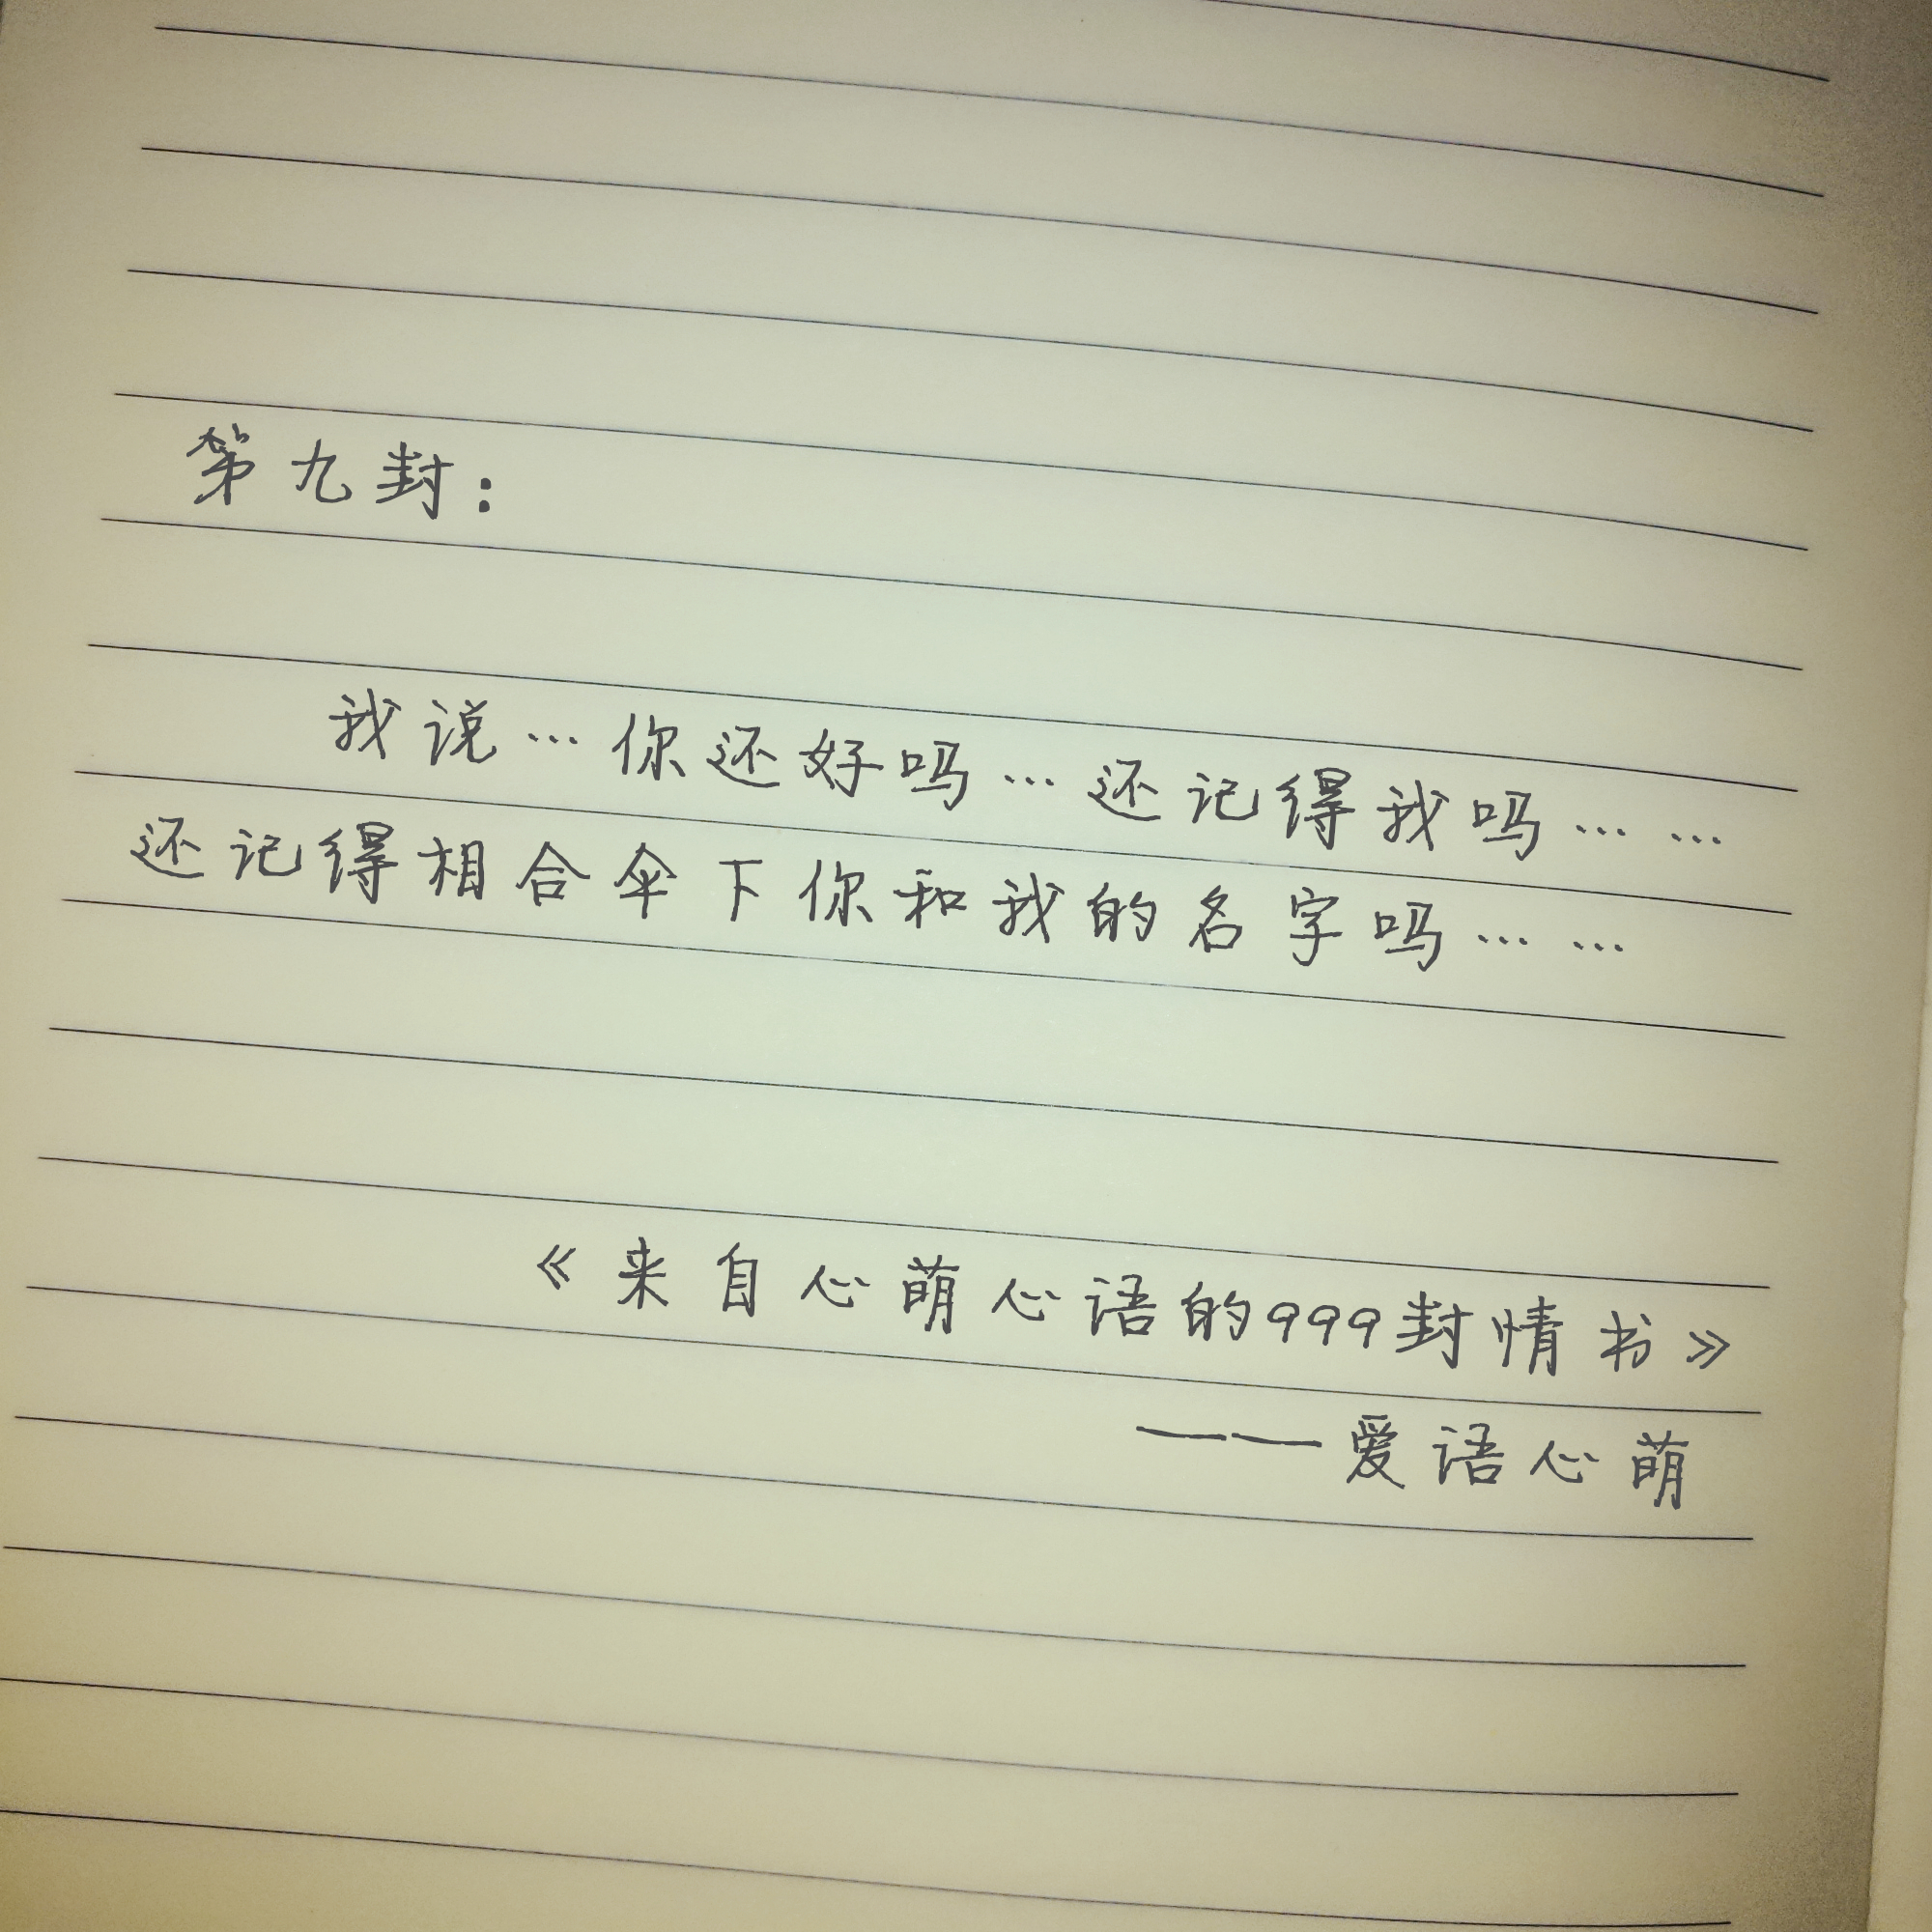 第九封：
我说…你还好吗…还记得我吗……
还记得相合伞下你和我的名字吗……
《来自心萌心语的999封情书》
——爱语心萌